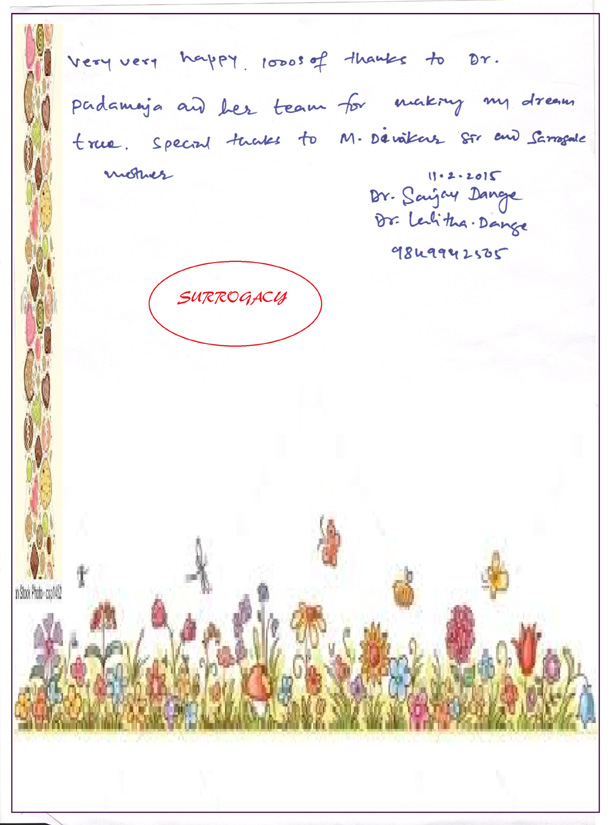 very very happy. 1000s of thanks to Dr.
Padamaja and her team for making my dream
true. Special thaks to M. Divakar Sir and Sarrogate
mother
11.2.2015
Dr. Sanjay Dange
Dr. Lalitha. Dange
9849942505
SURROGACY
n Stock Photo - csp1402